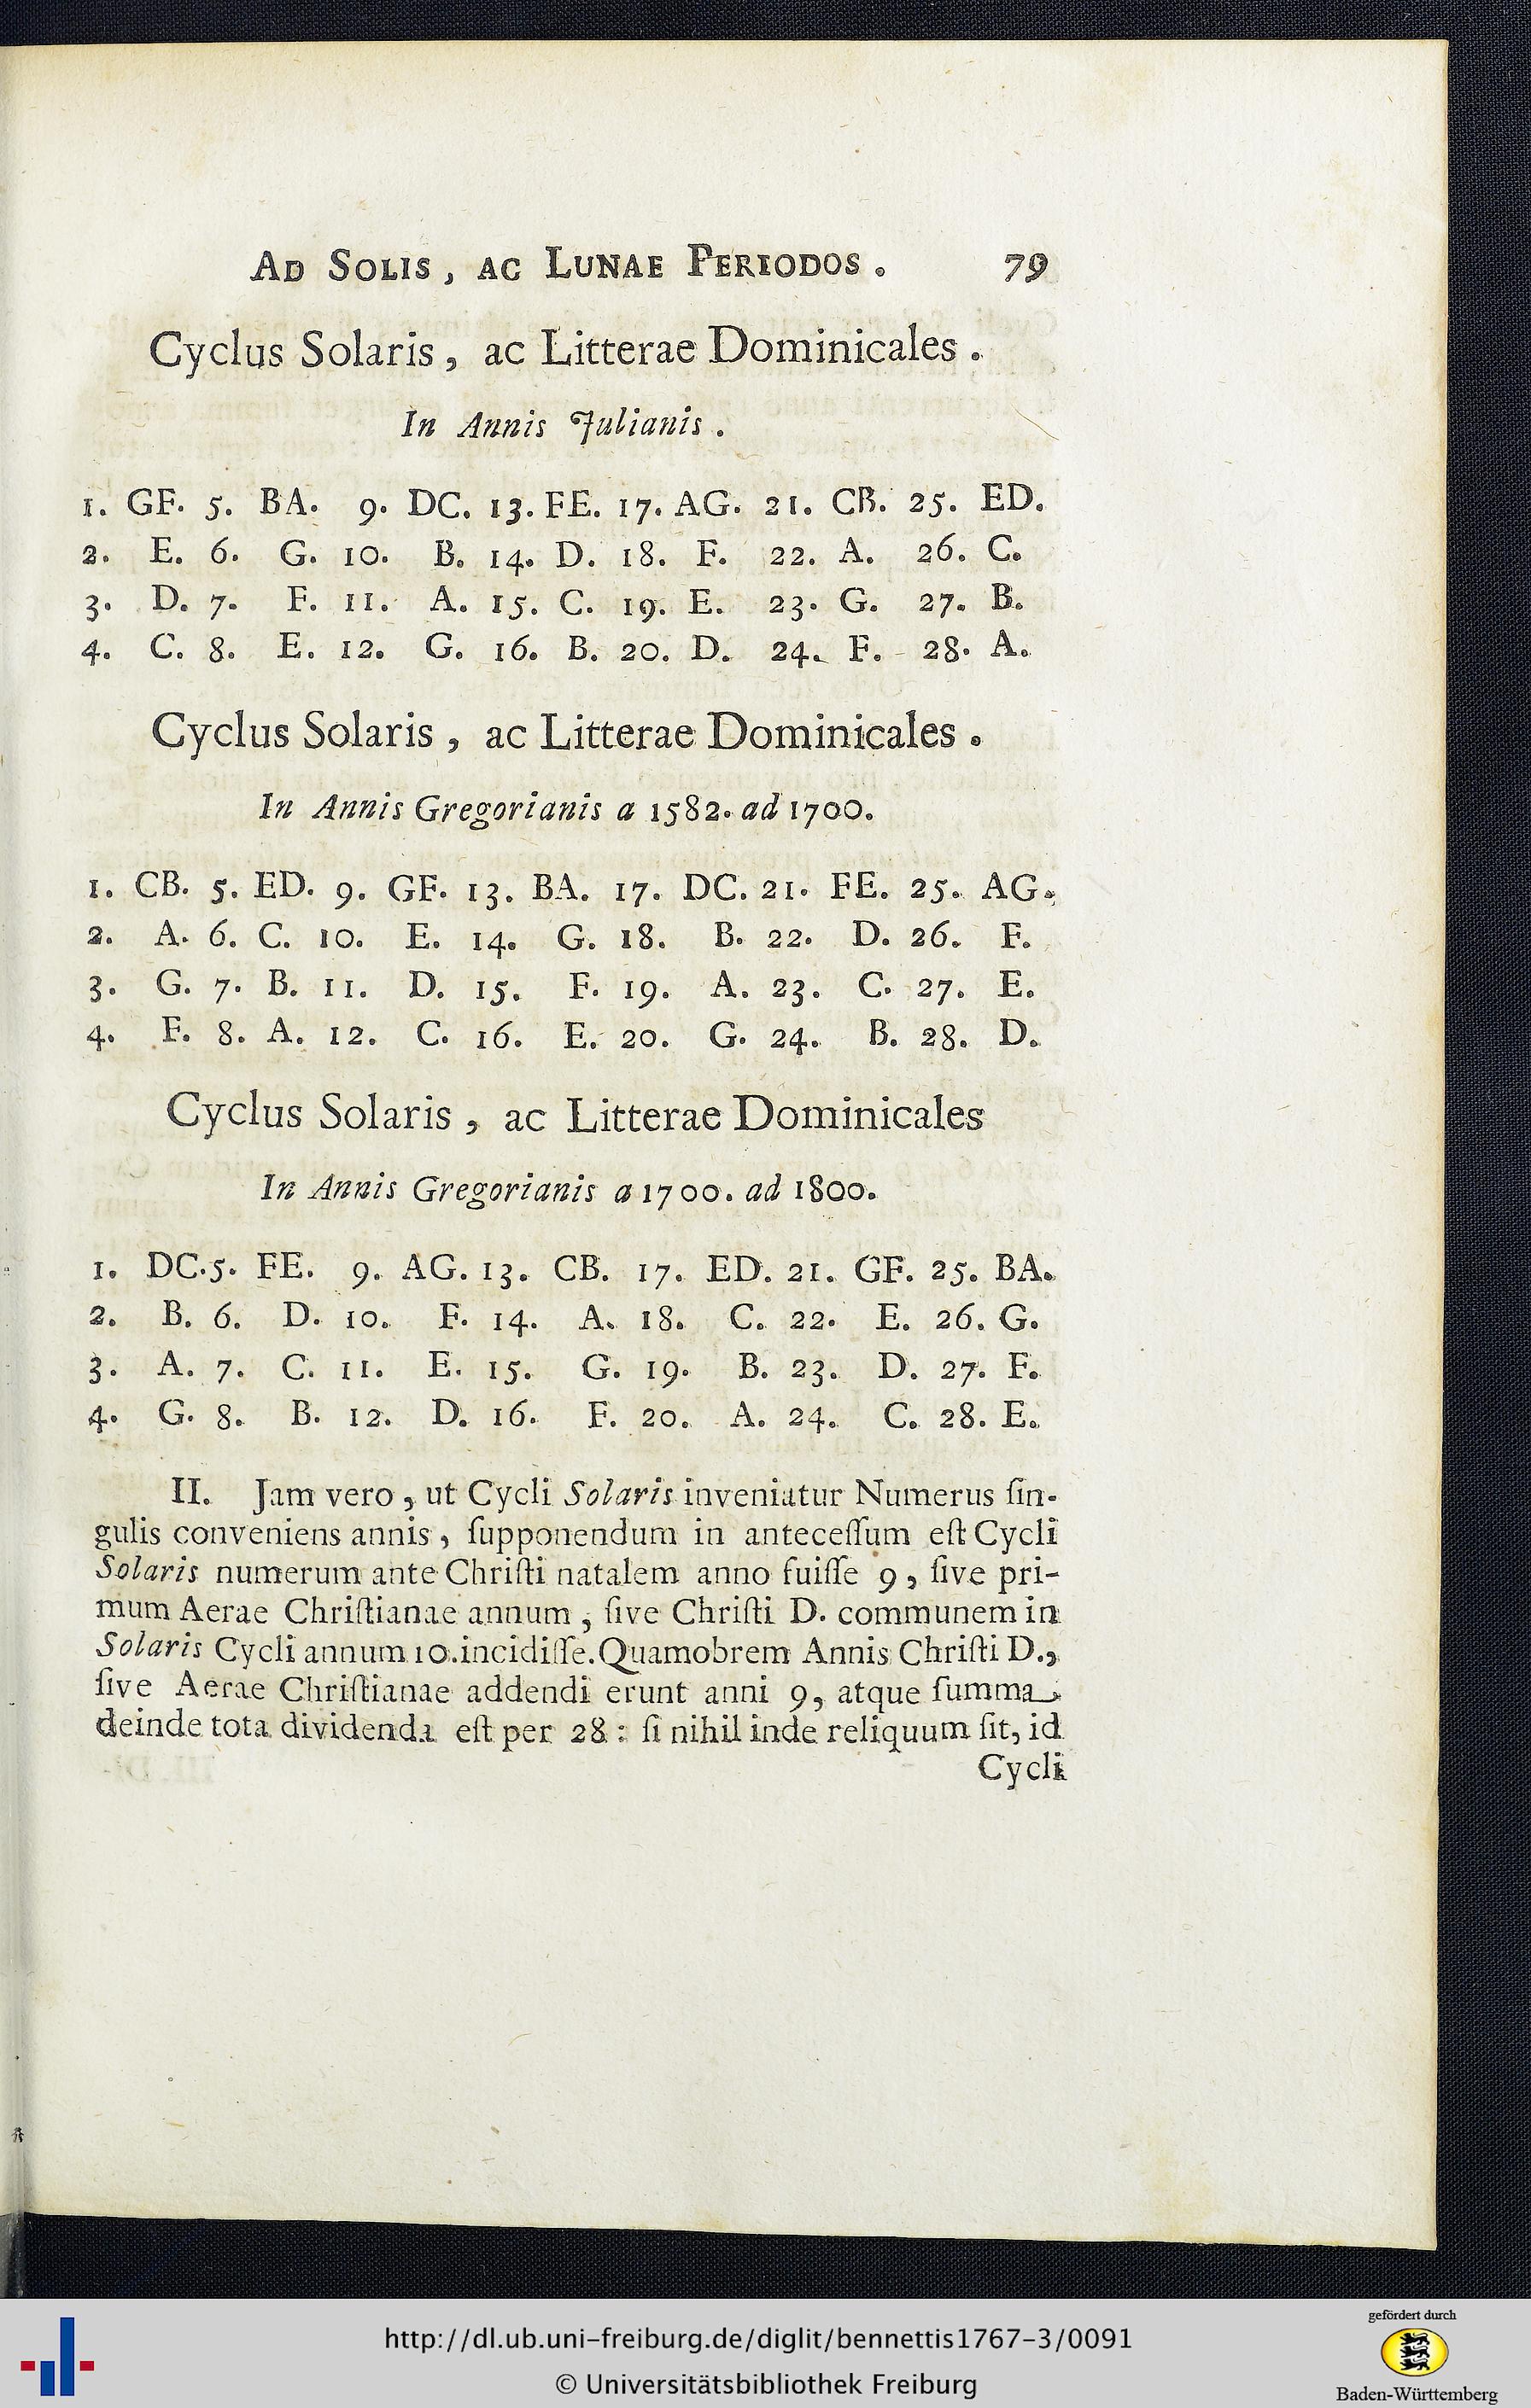 AD SOLIS, AC LUNAE PERIODOS. 79
Cyclus Solaris, ac Litterae Dominicales.
In Annis Julianis.
1. GF. 5. BA. 9. DC. 13. FE. 17. AG. 21. CB. 25. ED.
2. E. 6. G. 10. B. 14. D. 18. F. 22. A. 26. C.
3. D. 7. F. 11. A. 15. C. 19. E. 23. G. 27. B.
4. C. 8. E. 12. G. 16. B. 20. D. 24. F. 28. A.
Cyclus Solaris, ac Litterae Dominicales.
In Annis Gregorianis a 1582. ad 1700.
1. CB. 5. ED. 9. GF. 13. BA. 17. DC. 21. FE. 25. AG.
2. A. 6. C. 10. E. 14. G. 18. B. 22. D. 26. F.
3. G. 7. B. 11. D. 15. F. 19. A. 23. C. 27. E.
4. F. 8. A. 12. C. 16. E. 20. G. 24. B. 28. D.
Cyclus Solaris, ac Litterae Dominicales
In Annis Gregorianis a 1700. ad 1800.
1. DC. 5. FE. 9. AG. 13. CB. 17. ED. 21. GF. 25. BA.
2. B. 6. D. 10. F. 14. A. 18. C. 22. E. 26. G.
3. A. 7. C. 11. E. 15. G. 19. B. 23. D. 27. F.
4. G. 8. B. 12. D. 16. F. 20. A. 24. C. 28. E.
II. Jam vero, ut Cycli Solaris inveniatur Numerus ſin-
gulis conveniens annis, ſupponendum in anteceſſum eſt Cycli
Solaris numerum ante Chriſti natalem anno fuiſſe 9, ſive pri-
mum Aerae Chriſtianae annum, ſive Chriſti D. communem in
Solaris Cycli annum 10. incidiſſe. Quamobrem Annis Chriſti D.,
ſive Aerae Chriſtianae addendi erunt anni 9, atque ſumma
deinde tota dividenda eſt per 28: ſi nihil inde reliquum ſit, id
Cycli
http://dl.ub.uni-freiburg.de/diglit/bennettis1767-3/0091
© Universitätsbibliothek Freiburg
gefördert durch
Baden-Württemberg